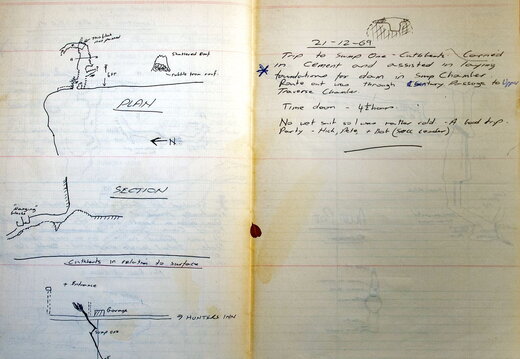 Shattered Roof
rubble from roof.
6FT
PLAN
N
SECTION
"Hanging"
Cuthberts in relation to surface
+ Entrance
Garage
→ HUNTERS INN
Sump One
21-12-69
Trip to Sump One - Cuthberts - Carried
in Cement and assisted in laying
foundations for dam in Sump Chamber
Route out was through Sentry Passage to Upper
Traverse Chamber
Time down - 4½ hours
No wet suit so I was rather cold - A good trip.
Party - Mick, Pete, + Bat (SELL Leader)